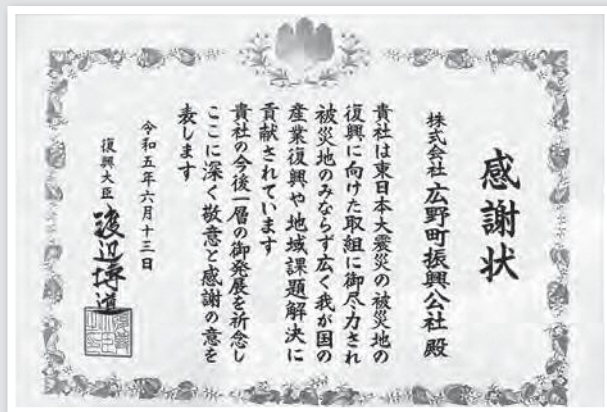 感謝状
株式会社 広野町振興公社 殿
貴社は東日本大震災の被災地の
復興に向けた取組に御尽力され
被災地のみならず広く我が国の
産業復興や地域課題解決に
貢献されています
貴社の今後一層の御発展を祈念し
ここに深く敬意と感謝の意を
表します
令和五年六月十三日
復興大臣 渡辺博道